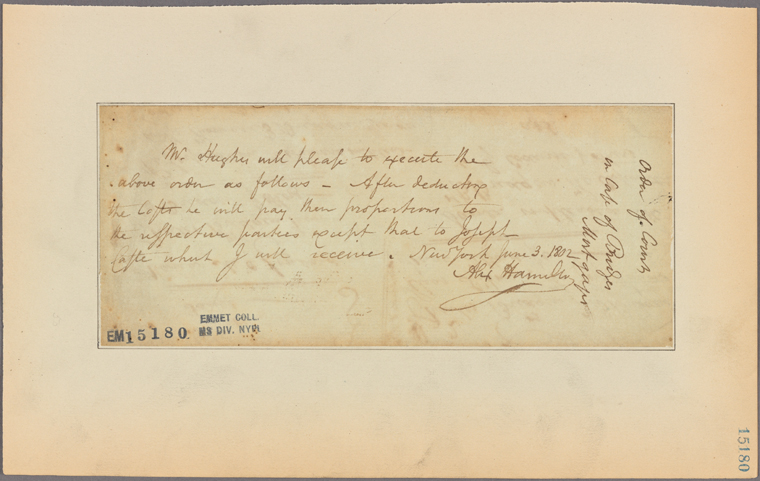 Mr. Hughes will please to execute the
above order as follows – After deducting
the Costs he will pay their proportions to
the respective parties except that to Joseph
which I will receive. New York June 3. 1802
Alex Hamilton
Order of Court
in Case of
Mortgage
EMMET COLL.
MS DIV. NYPL
EM15180
15180